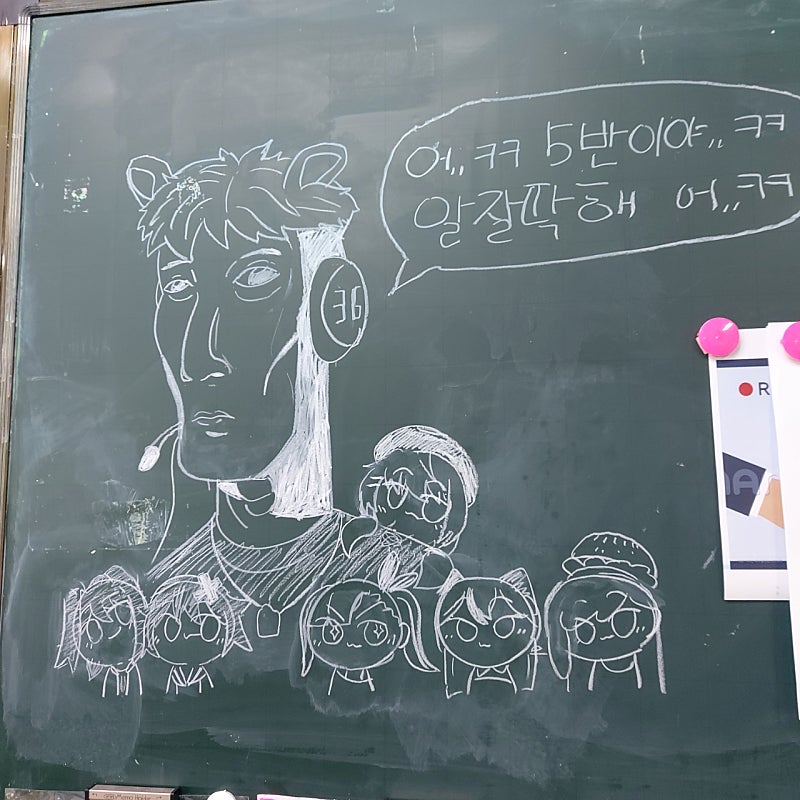 어,, ㅋㅋ 5반이야,, ㅋㅋ
알잘딱해 어,, ㅋㅋ
36
R